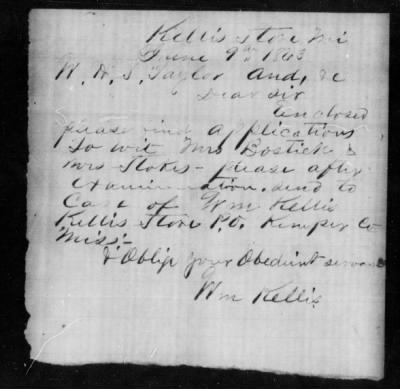 Kellis store Mi
June 9th 1863
W. H. S. Taylor Aud, &c
Dear Sir
Enclosed
please find applications
To wit Mrs Bostick &
Mrs Stokes - please after
Examination. send to
Care of Wm Kellis
Kellis Store P.O. Kemper Co
Miss:-
& Oblige your Obedient servant
Wm Kellis